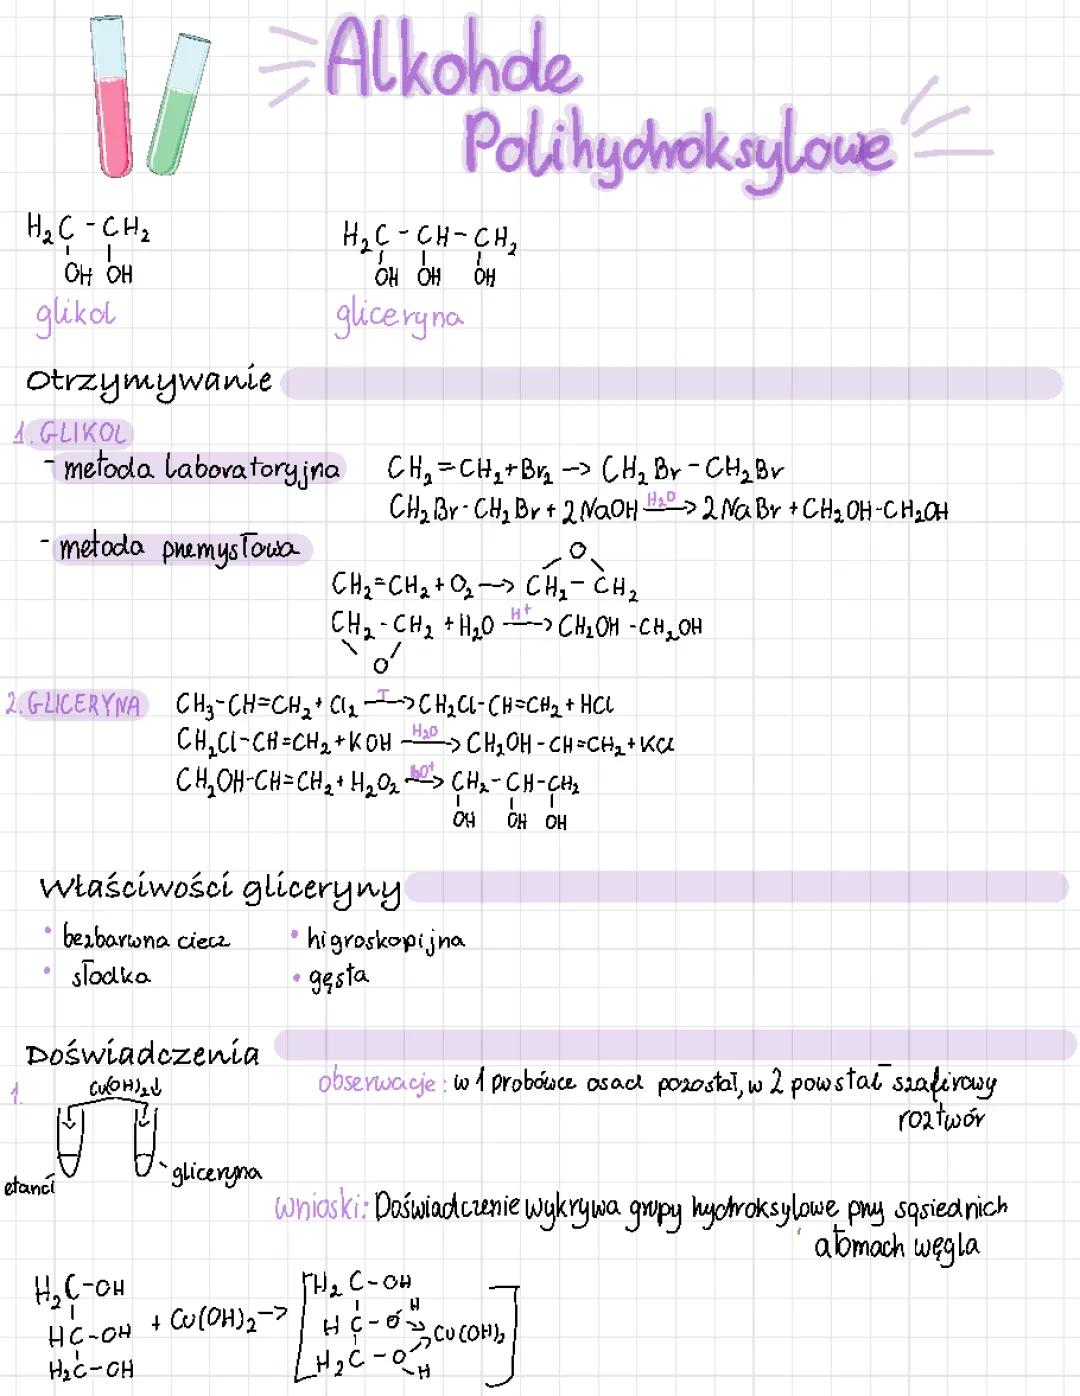 Alkohole
Polihydroksylowe
H₂C-CH₂
OH OH
glikol
H₂C-CH-CH₂
OH OH OH
gliceryna
Otrzymywanie
1. GLIKOL
- metoda laboratoryjna
CH₂=CH₂+Br₂ -> CH₂Br-CH₂Br
CH₂Br-CH₂Br+2NaOH H₂O -> 2NaBr+CH₂OH-CH₂OH
- metoda przemysłowa
O
CH₂=CH₂+O₂ -> CH₂-CH₂
CH₂-CH₂+H₂O H⁺ -> CH₂OH-CH₂OH
O
2. GLICERYNA
CH₃-CH=CH₂+Cl₂ T -> CH₂Cl-CH=CH₂+HCl
CH₂Cl-CH=CH₂+KOH H₂O -> CH₂OH-CH=CH₂+KCl
CH₂OH-CH=CH₂+H₂O₂ -> CH₂-CH-CH₂
OH OH OH
Właściwości gliceryny
• bezbarwna ciecz
• słodka
• higroskopijna
• gęsta
Doświadczenia
1.
Cu(OH)₂↓
etanol
gliceryna
obserwacje: w 1 probówce osad pozostał, w 2 powstał szafirowy
roztwór
wnioski: Doświadczenie wykrywa grupy hydroksylowe przy sąsiednich
atomach węgla
H₂C-OH
HC-OH + Cu(OH)₂ ->
H₂C-OH
H₂C-OH
H
HC-O Cu(OH)₂
H₂C-O
H